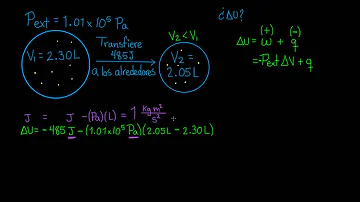 Pext = 1.01x10⁵ Pa
¿ΔU?
V₁ = 2.30L
Transfiere
485J
a los alrededores
V₂ < V₁
V₂ =
2.05L
(+) (-)
ΔU = w + q
= -Pext ΔV + q
J = J - (Pa)(L) = 1 kg m²/s²
ΔU = - 485 J - (1.01x10⁵ Pa)(2.05L - 2.30L)